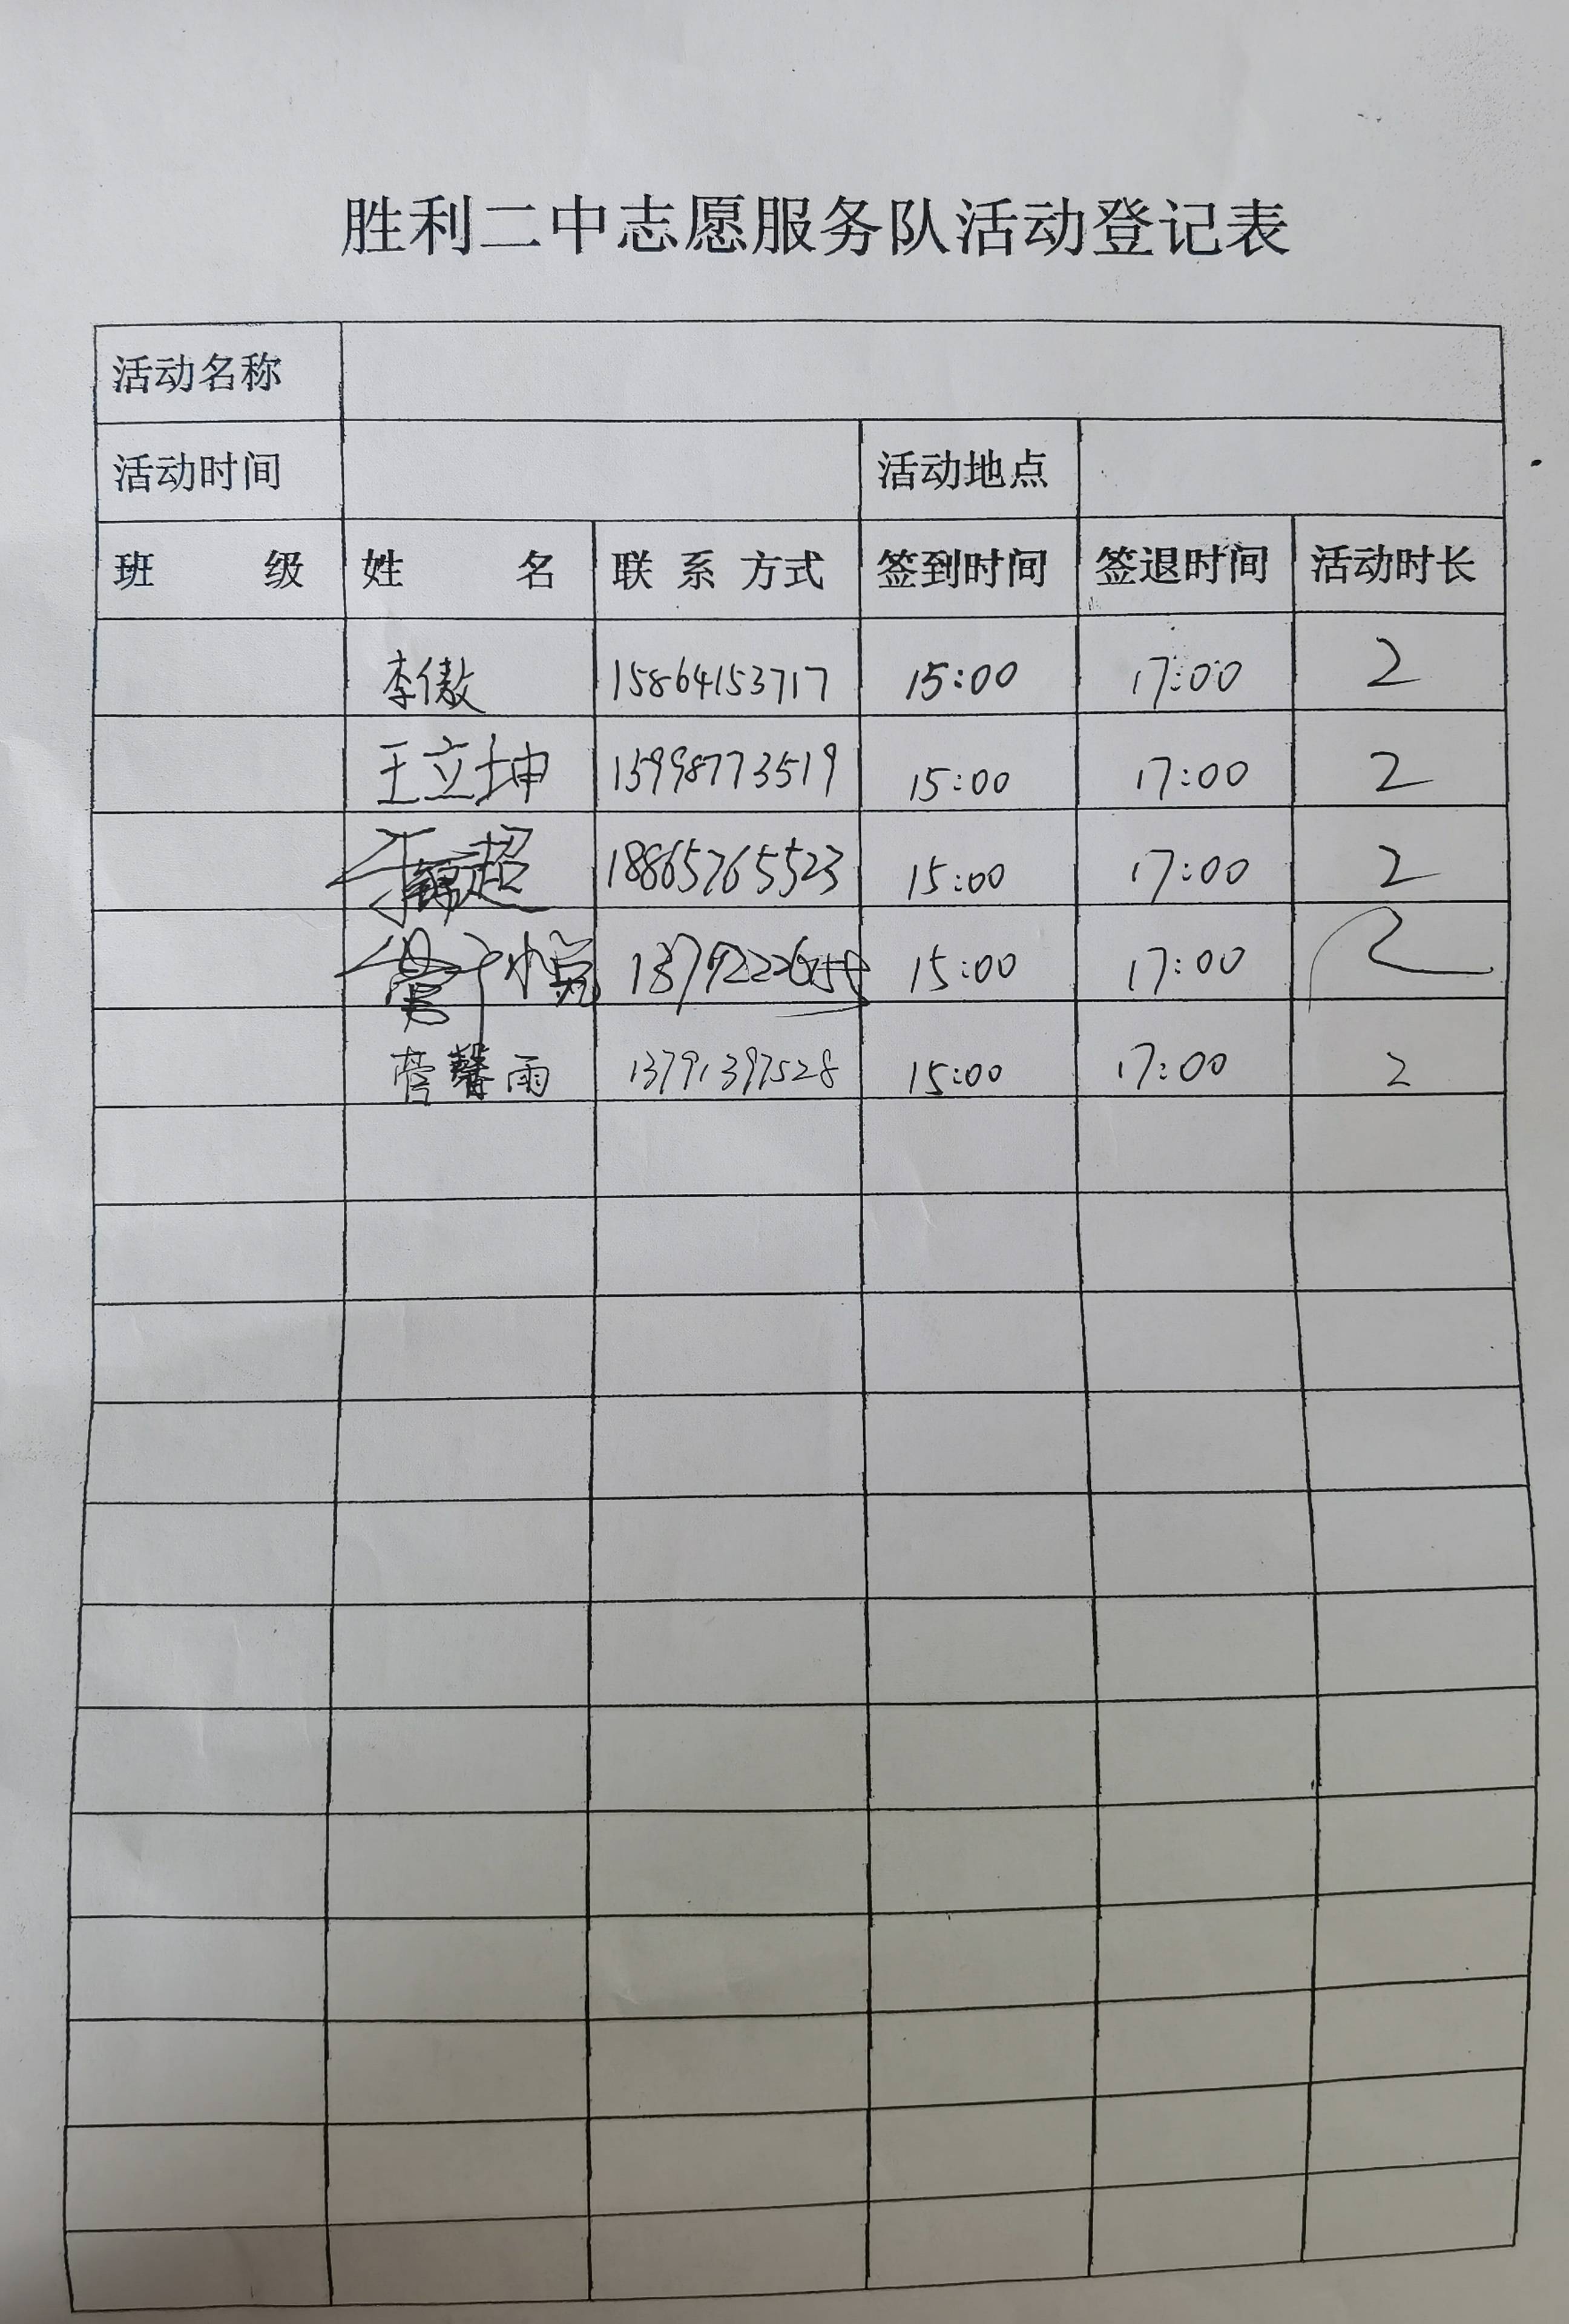 胜利二中志愿服务队活动登记表
活动名称
活动时间 活动地点
班 级 姓 名 联 系 方式 签到时间 签退时间 活动时长
李傲 15864153717 15:00 17:00 2
王立坤 15998773519 15:00 17:00 2
超 18865765523 15:00 17:00 2
小悦 15:00 17:00 2
营馨雨 13791397528 15:00 17:00 2